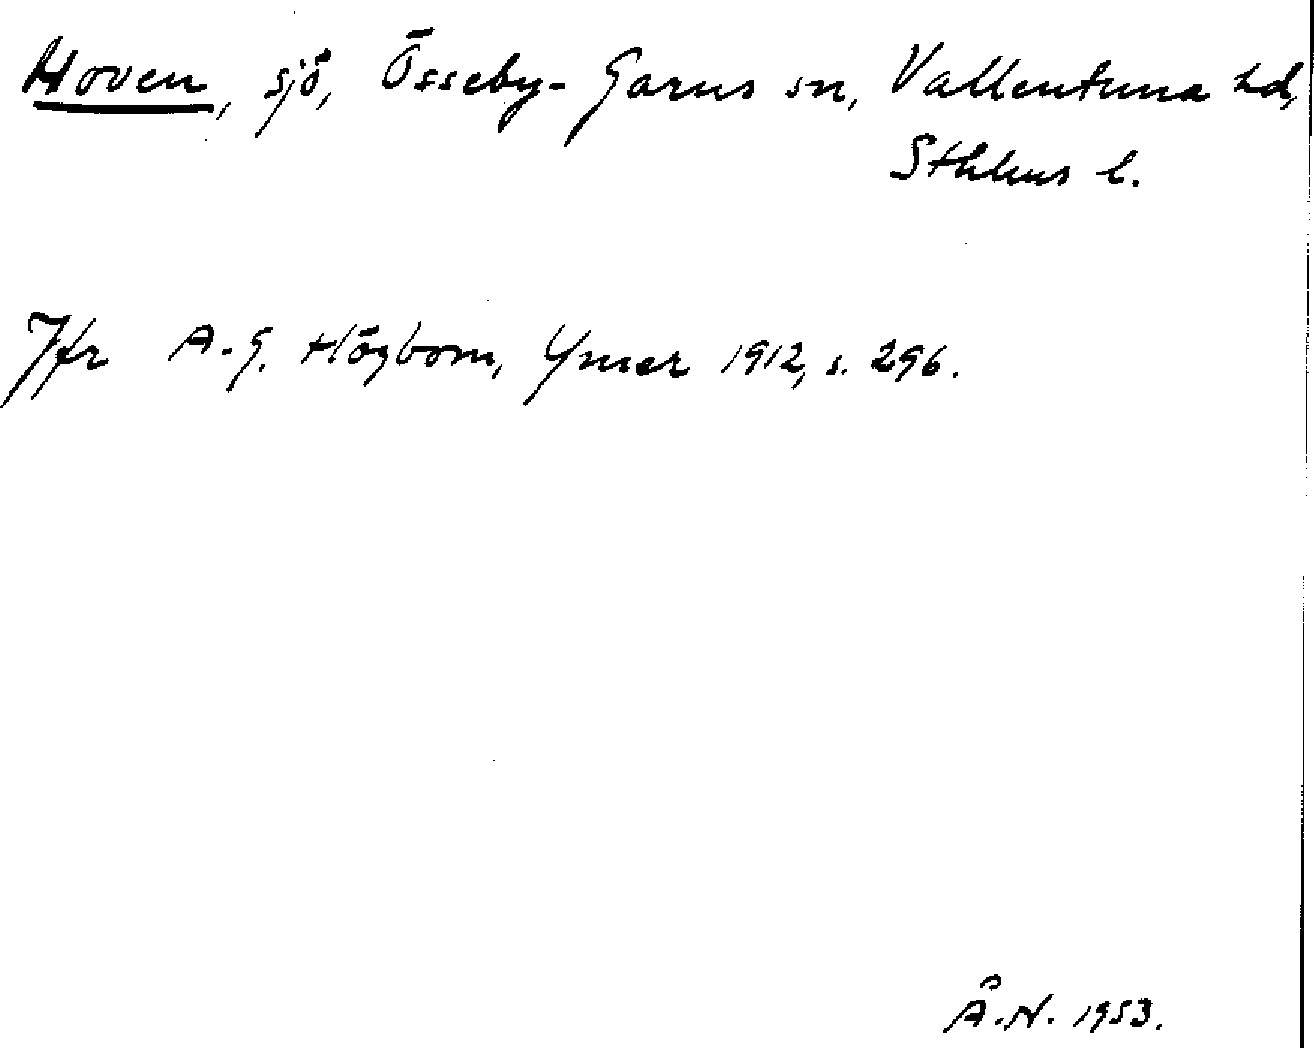 Hoven, sjö, Össeby-Garns sn, Vallentuna hd,
Sthlms l.
Jfr A.G. Högbom, Ymer 1912, s. 296.
Å.N. 1953.